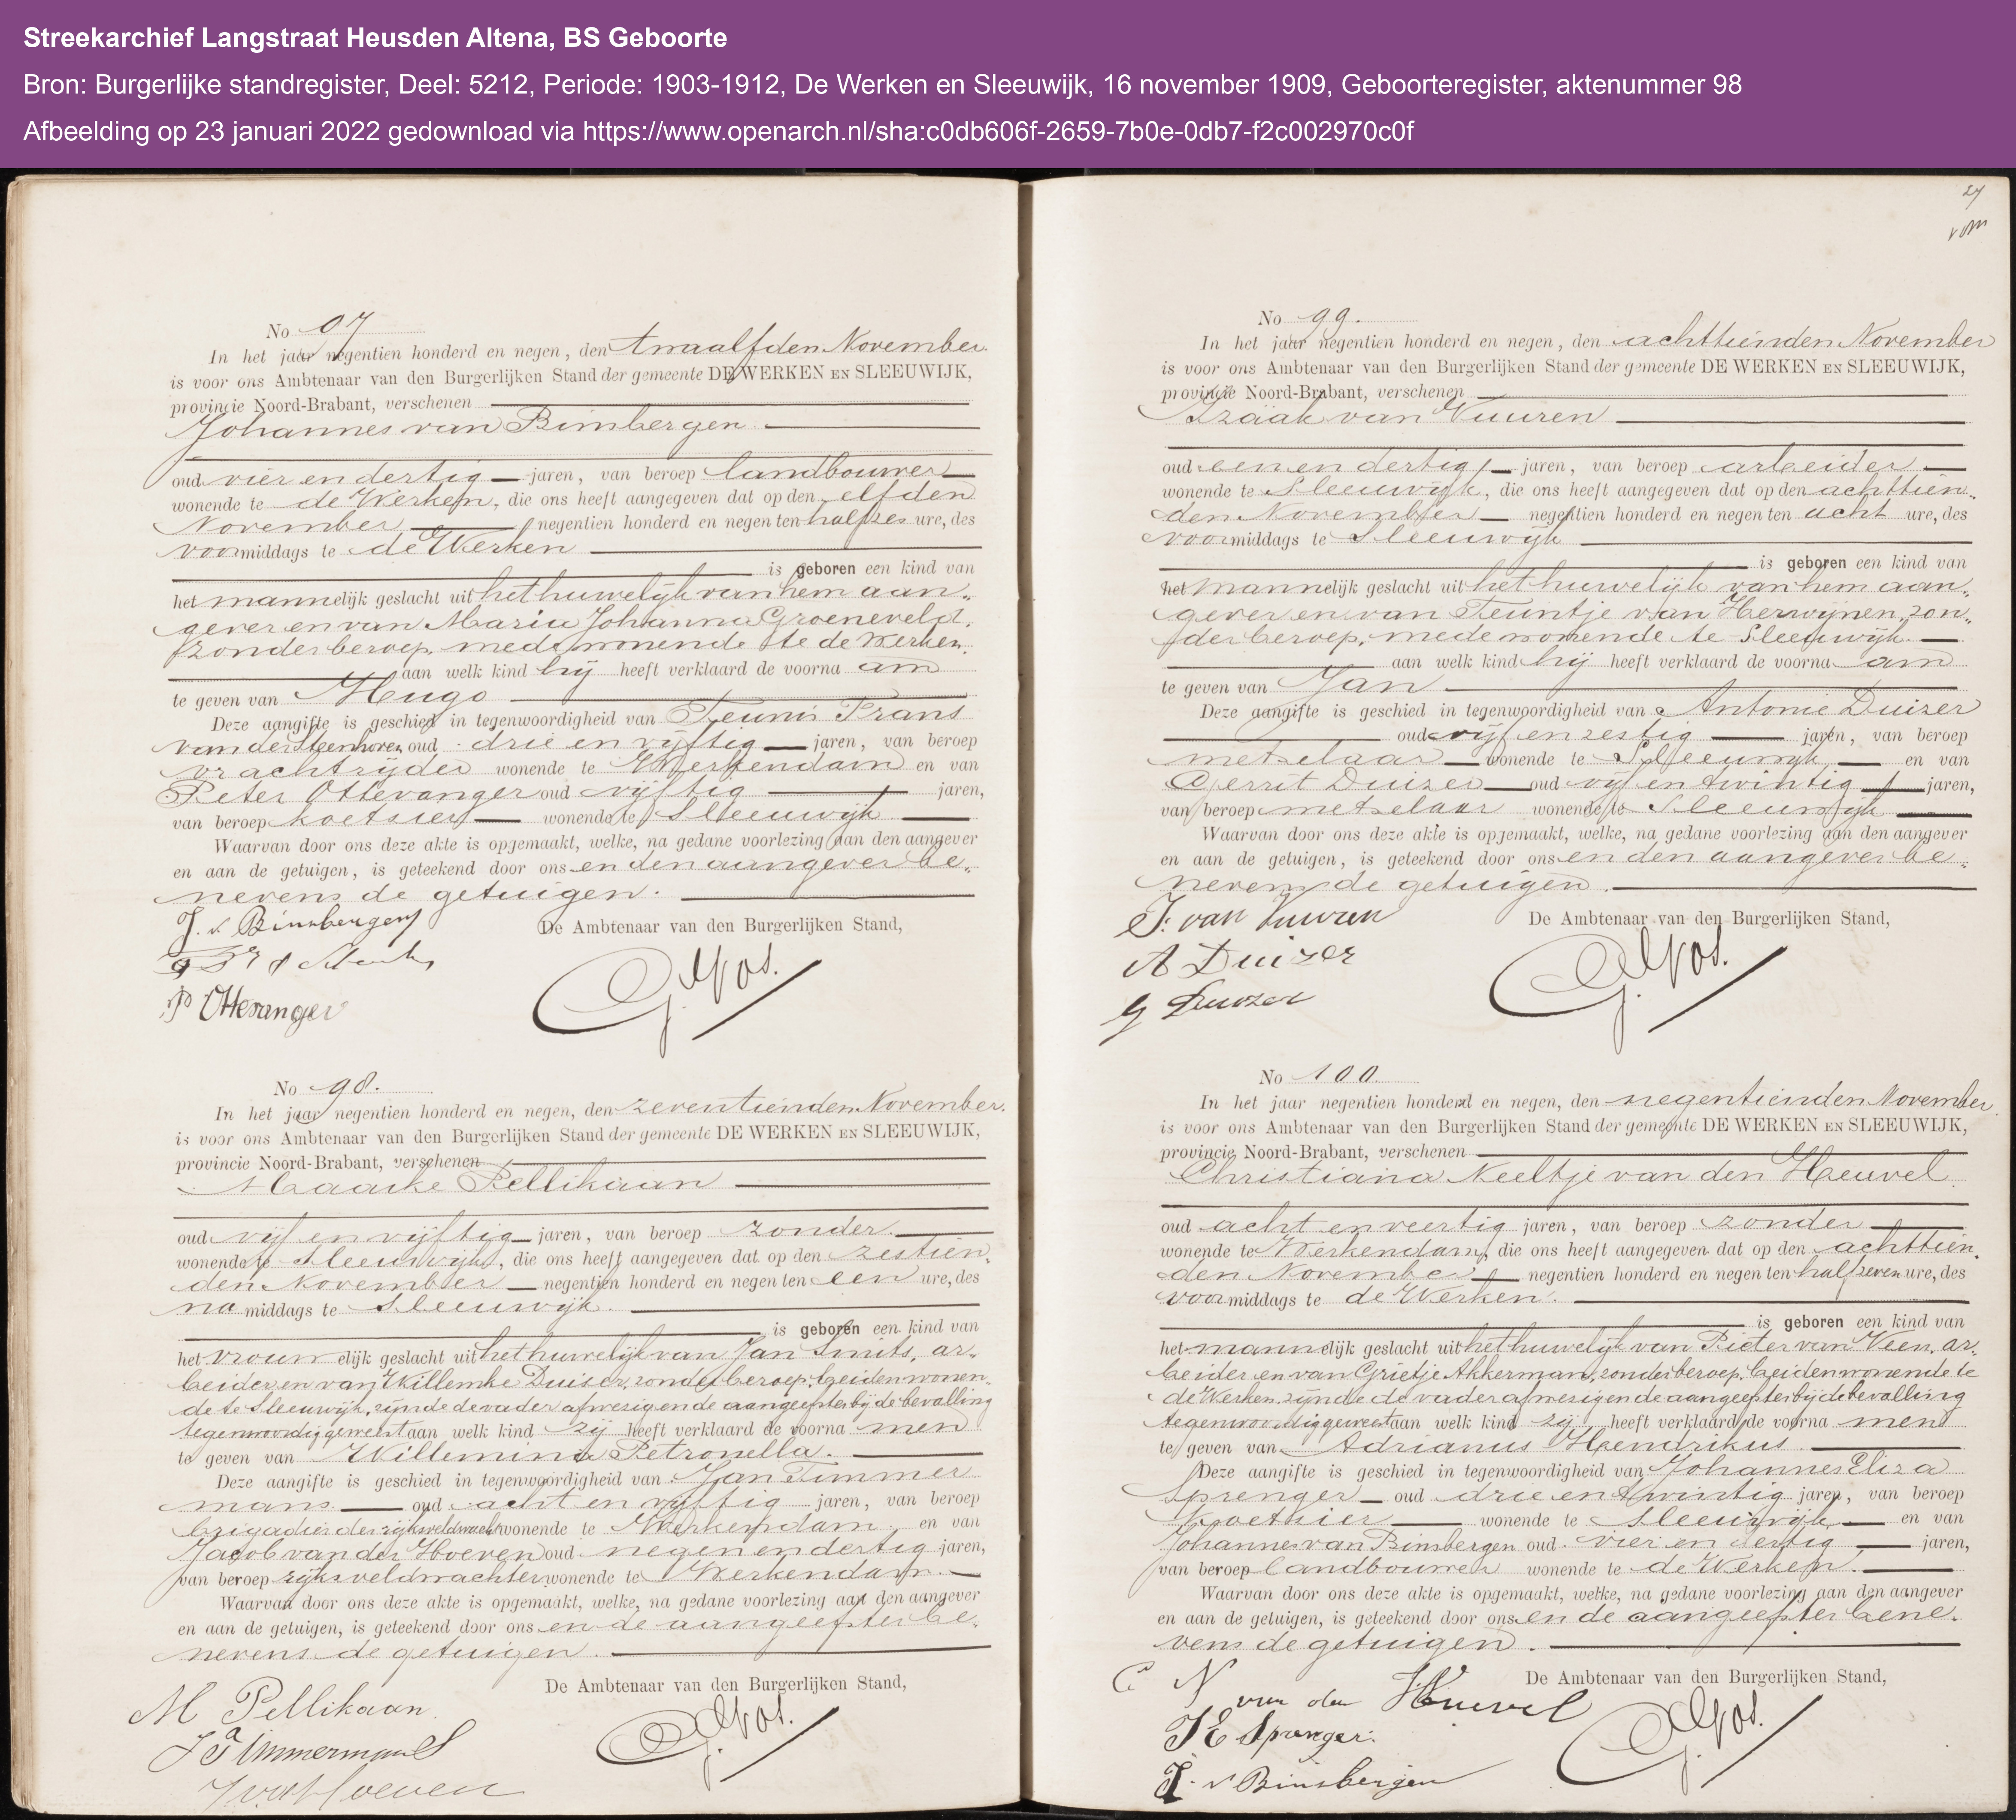 Streekarchief Langstraat Heusden Altena, BS Geboorte
Bron: Burgerlijke standregister, Deel: 5212, Periode: 1903-1912, De Werken en Sleeuwijk, 16 november 1909, Geboorteregister, aktenummer 98
Afbeelding op 23 januari 2022 gedownload via https://www.openarch.nl/sha:c0db606f-2659-7b0e-0db7-f2c002970c0f
No 97
In het jaar negentien honderd en negen, den twaalfden November
is voor ons Ambtenaar van den Burgerlijken Stand der gemeente DE WERKEN EN SLEEUWIJK,
provincie Noord-Brabant, verschenen
Johannes van Binsbergen
oud vier en dertig jaren, van beroep landbouwer
wonende te de Werken, die ons heeft aangegeven dat op den elfden
November negentien honderd en negen ten half zes ure, des
voormiddags te de Werken
is geboren een kind van
het mannelijk geslacht uit het huwelijk van hem aan„
gever en van Maria Johanna Groeneveld,
zonder beroep, mede wonende te de Werken,
aan welk kind hij heeft verklaard de voorna am
te geven van Hugo
Deze aangifte is geschied in tegenwoordigheid van Teunis Frans
van der Steenhoven oud drie en vijftig jaren, van beroep
vrachtrijder wonende te Werkendam en van
Peter Ottevanger oud vijftig jaren,
van beroep koetsier wonende te Sleeuwijk
Waarvan door ons deze akte is opgemaakt, welke, na gedane voorlezing aan den aangever
en aan de getuigen, is geteekend door ons en den aangever be„
nevens de getuigen.
J. v Binsbergen
De Ambtenaar van den Burgerlijken Stand,
P Ottevanger
G. Vos.
No 98.
In het jaar negentien honderd en negen, den zeventienden November.
is voor ons Ambtenaar van den Burgerlijken Stand der gemeente DE WERKEN EN SLEEUWIJK,
provincie Noord-Brabant, verschenen
Maaike Pellikaan
oud vijf en vijftig jaren, van beroep zonder.
wonende te Sleeuwijk, die ons heeft aangegeven dat op den zestien„
den November negentien honderd en negen ten een ure, des
na middags te Sleeuwijk.
is geboren een kind van
het vrouwelijk geslacht uit het huwelijk van Jan Smits, ar„
beider en van Willemke Duiser, zonder beroep, beiden wonen„
de te Sleeuwijk, zijnde de vader afwezig en de aangeefster bij de bevalling
tegenwoordig geweest aan welk kind zij heeft verklaard de voorna men
te geven van Willemina Petronella.
Deze aangifte is geschied in tegenwoordigheid van Jan Timmer
mans oud acht en vijftig jaren, van beroep
brigadier der rijksveldwacht wonende te Werkendam, en van
Jacob van der Hoeven oud negen en dertig jaren,
van beroep rijksveldwachter wonende te Werkendam.
Waarvan door ons deze akte is opgemaakt, welke, na gedane voorlezing aan den aangever
en aan de getuigen, is geteekend door ons en de aangeefster be„
nevens de getuigen.
De Ambtenaar van den Burgerlijken Stand,
M Pellikaan
J Timmermans
J vd Hoeven
G. Vos.
27
No 99.
In het jaar negentien honderd en negen, den achttienden November
is voor ons Ambtenaar van den Burgerlijken Stand der gemeente DE WERKEN EN SLEEUWIJK,
provincie Noord-Brabant, verschenen
Izaäk van Vuuren
oud een en dertig jaren, van beroep arbeider
wonende te Sleeuwijk, die ons heeft aangegeven dat op den achttien„
den November negentien honderd en negen ten acht ure, des
voormiddags te Sleeuwijk
is geboren een kind van
het mannelijk geslacht uit het huwelijk van hem aan„
gever en van Teuntje van Herwijnen, zon„
der beroep, mede wonende te Sleeuwijk.
aan welk kind hij heeft verklaard de voorna am
te geven van Jan
Deze aangifte is geschied in tegenwoordigheid van Antonie Duizer
oud vijf en zestig jaren, van beroep
metselaar wonende te Sleeuwijk, en van
Gerrit Duizer oud vijf en twintig jaren,
van beroep metselaar wonende te Sleeuwijk
Waarvan door ons deze akte is opgemaakt, welke, na gedane voorlezing aan den aangever
en aan de getuigen, is geteekend door ons en den aangever be„
nevens de getuigen.
J. van Vuuren
De Ambtenaar van den Burgerlijken Stand,
A Duizer
G Duizer
G. Vos.
No 100.
In het jaar negentien honderd en negen, den negentienden November
is voor ons Ambtenaar van den Burgerlijken Stand der gemeente DE WERKEN EN SLEEUWIJK,
provincie Noord-Brabant, verschenen
Christiana Neeltje van den Heuvel
oud acht en veertig jaren, van beroep zonder
wonende te Werkendam, die ons heeft aangegeven dat op den achttien„
den November negentien honderd en negen ten half zeven ure, des
voormiddags te de Werken.
is geboren een kind van
het mannelijk geslacht uit het huwelijk van Pieter van Veen, ar„
beider en van Grietje Akkerman, zonder beroep, beiden wonende te
de Werken, zijnde de vader afwezig en de aangeefster bij de bevalling
tegenwoordig geweest aan welk kind zij heeft verklaard de voorna men
te geven van Adrianus Hendrikus.
Deze aangifte is geschied in tegenwoordigheid van Johannes Eliza
Sprenger oud drie en twintig jaren, van beroep
koetsier wonende te Sleeuwijk, en van
Johannes van Binsbergen oud vier en dertig jaren,
van beroep landbouwer wonende te de Werken.
Waarvan door ons deze akte is opgemaakt, welke, na gedane voorlezing aan den aangever
en aan de getuigen, is geteekend door ons en de aangeefster bene„
vens de getuigen.
De Ambtenaar van den Burgerlijken Stand,
C N van den Heuvel
J E Sprenger.
J. v Binsbergen
G. Vos.